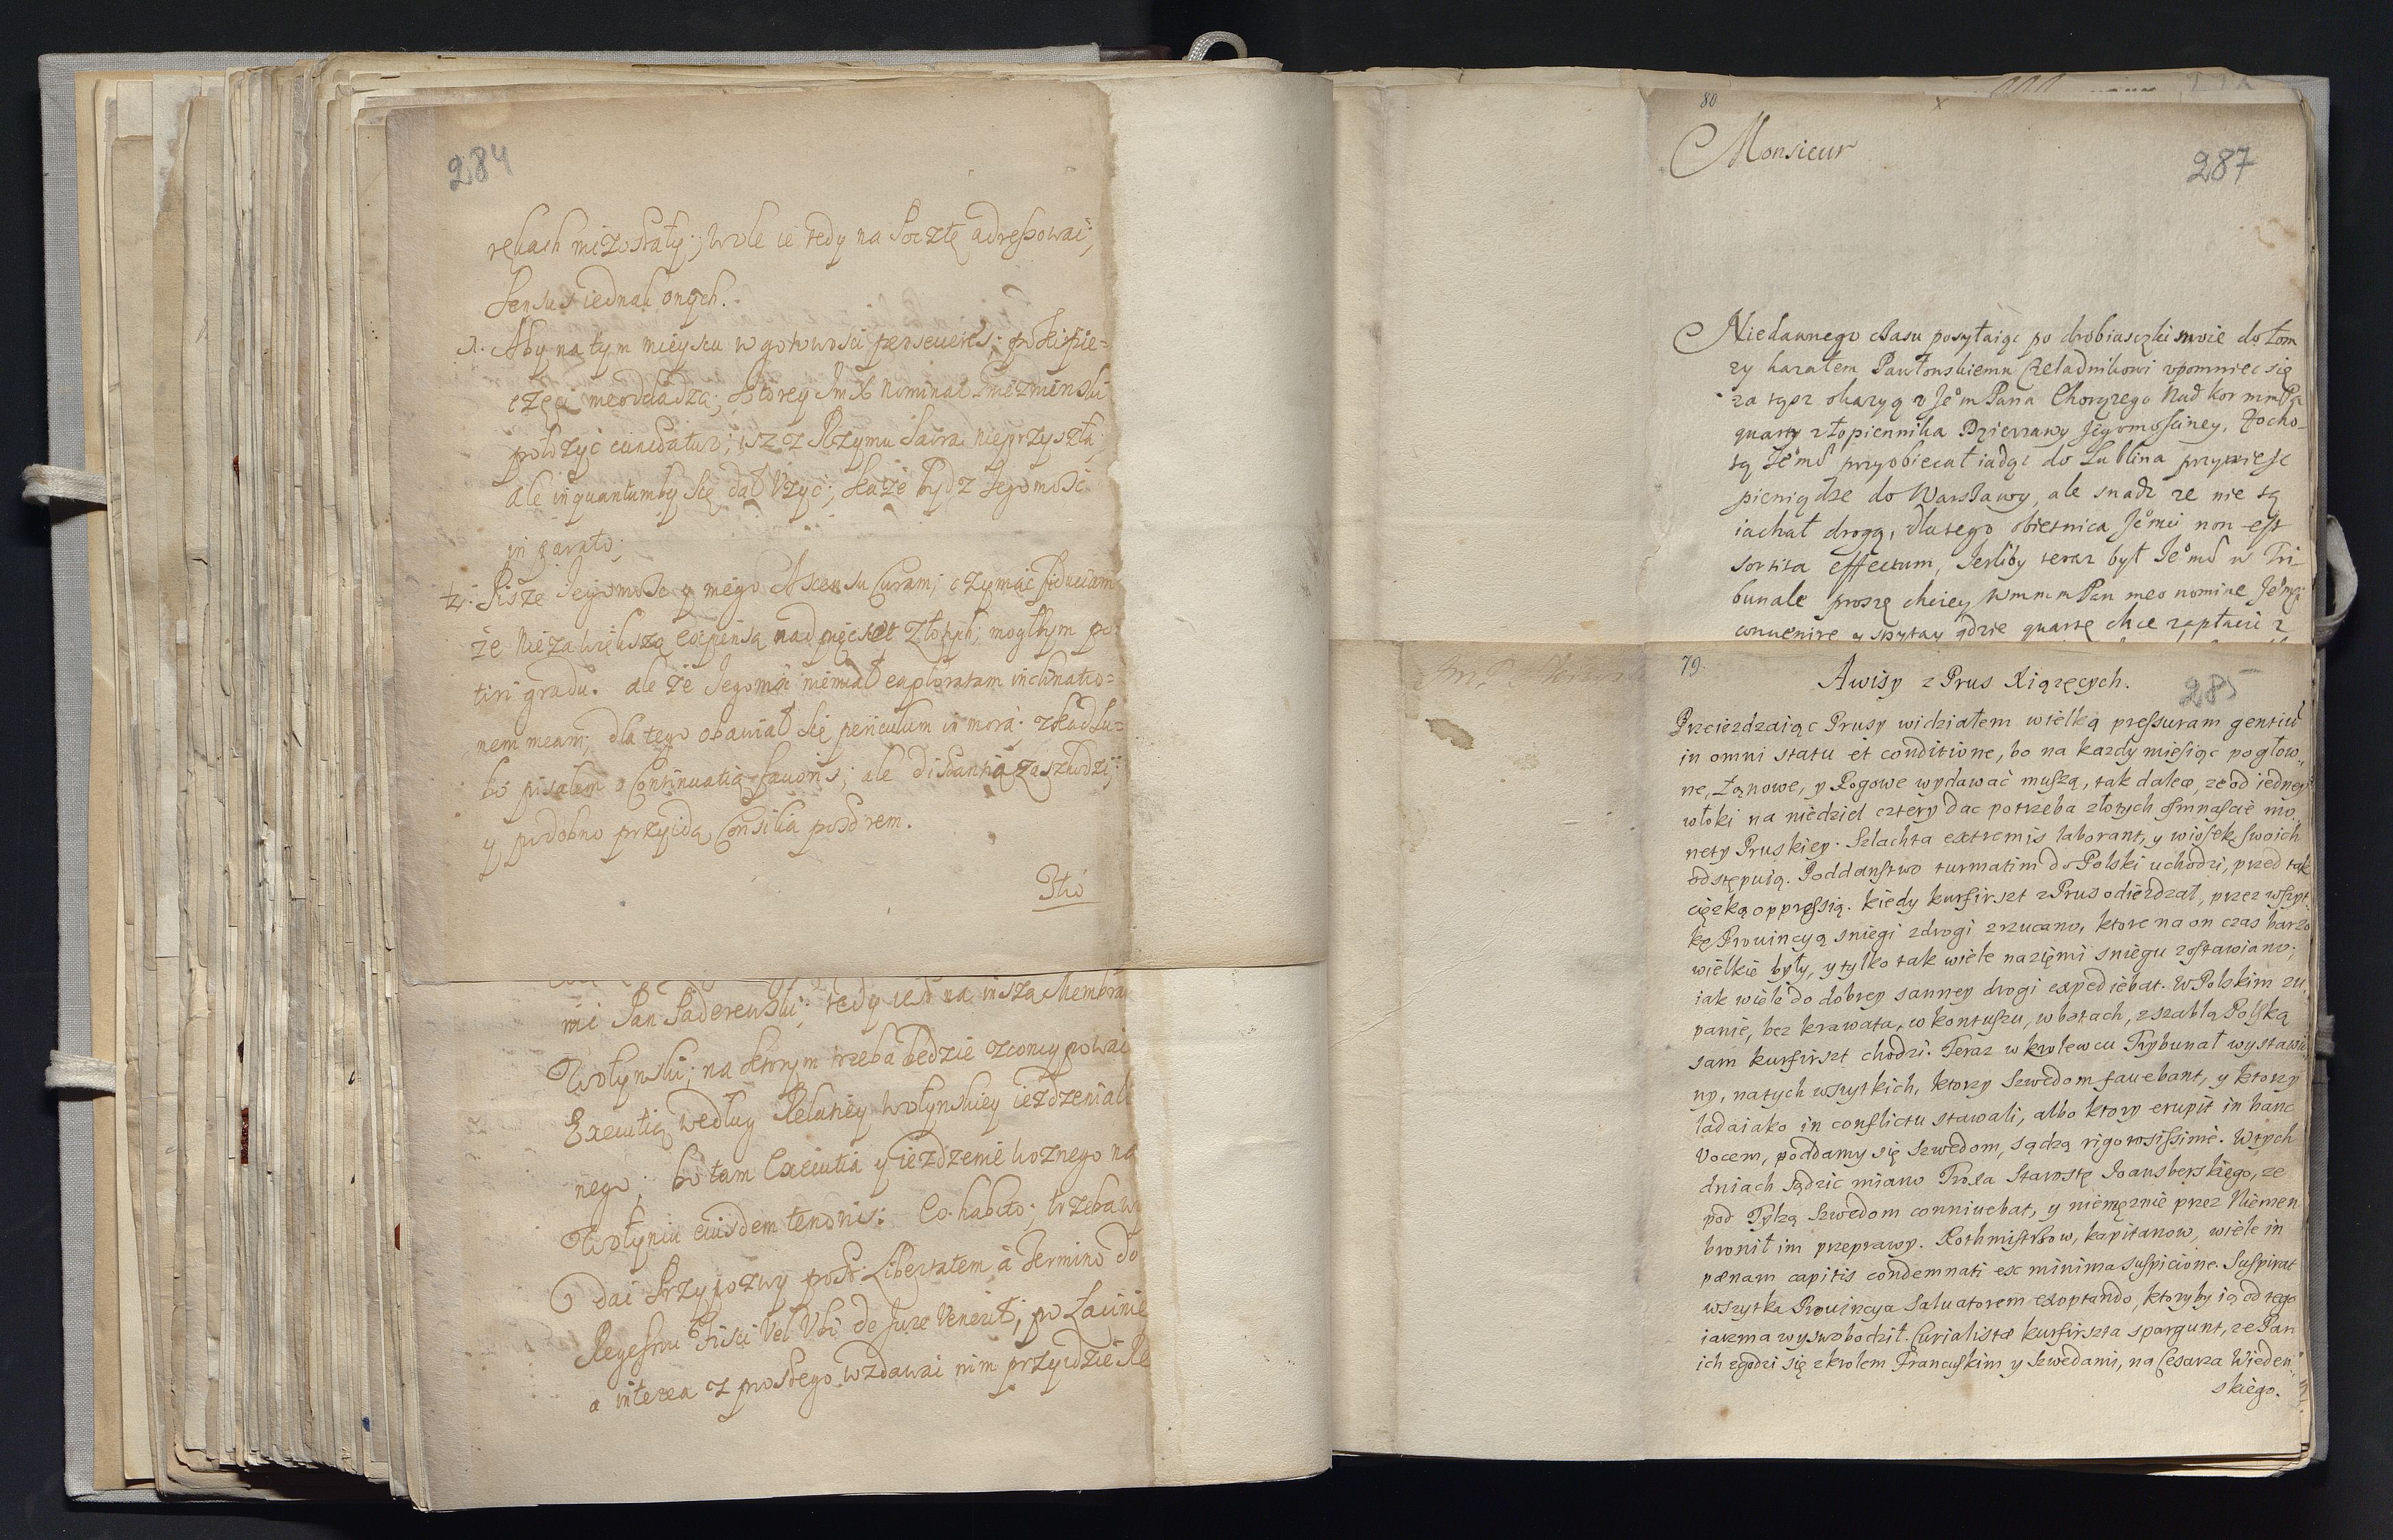 284
rękach mi zostały; wole ie tedy na Pocztę adressować,
Sensus iednak onych.
1. Aby na tym mieyscu w gotowosci perseueres; poki pie-
częci nie oddadzą; ktorey JmX nominat Zmezmenski
położyć
ale inquantumby się dał Vżyć; każe bydz Jegomość
in parato;
2. Pisze Jegomość y mego Ascensu Curam; czymiać fiduciam
że nie za większą expensą nad pięćset Złotych; mogłbym po-
tiri gradu. ale że Jegomść niemiał exploratam inclinatio-
nem meam; dla tego obawiał się periculum in mora.
bo pisałem o Continuatią fauoris; ale distantia zaszkodzi;
y podobno przyidą Consilia post rem.
mi Pan Paderewski; tedy iest na insza Membra
Wołynski; na ktorym trzeba będzie zconcypować
Executią według Relatiey wołynskiey ieżdzenia
nego; bo tam Executia y ieżdzenie woznego na
Wołyniu eiusdem tenoris: Co habito; trzeba wy
dać Przypozwy post Libertatem à Termino do
Regestru Fisci Vel Vbi de Jure Venerit; po Łacinie
a interea z prostego wzdawać nim przyidzie Re
80
Monsieur
287
Niedawnego czasu posyłaiąc po drobiaszki moie do Łom
zy kazałem Pawłowskiemu Czeladnikowi vpomniec się
za tąsz okazyą v Jeo͂m Pana Chorązego Nad kor mmPa
quarty z Łopiennika Dzierzawy Jegomosciney, Zocho-
tą Jeo͂mść przyobiecał iadąc do Lublina przywiesc
pieniądze do Warszawy, ale snadz ze nie tą
iachał drogą, dlatego obietnica Jeo͂mci non est
sortita effectum, Jezliby teraz był Jeo͂mść w Tri-
bunale proszę chciey WmmmPan meo nomine Jeo͂mci
conuenire y spytay gdzie quartę chce zapłacić z
79.
Awisy z Prus Xiążęcych.
285
Przeiezdzaiąc Prusy widziałem wielką pressuram gentiũ
in omni statu et conditione, bo na kazdy miesiąc pogłow„
ne, Łanowe, y Rogowe wydawać muszą, tak dalece, ze od iedney
włoki na niedziel cztery dac potrzeba złotych osmnascie mo„
nety Pruskiey. Szlachta extremis laborant, y wiosek swoich
odstępuią. Poddanstwo turmatim do Polski uchodzi, przed tak
cięzką oppressią. kiedy kurfirszt z Prus odiezdzał, przez wszyt„
kę Prouincyą sniegi z drogi zrzucano, ktore na on czas barzo
wielkie były, y tylko tak wiele na ziemi sniegu zostawiano;
iak wiele do dobrey sanney drogi expediebat. W Polskim zu„
panie, bez krawata, w kontuszu, w botach, z szablą Polską
sam kurfirszt chodzi. Teraz w krolewcu Trybunał wystawio„
ny, na tych wszytkich, ktorzy Szwedom fauebant, y ktorzy
ladaiako in conflictu stawali, albo ktory erupit in hanc
Vocem, poddamy się Szwedom, sądzą rigorosissimè. W tych
dniach sądzic miano Troxa Starostę Joansberskiego, ze
pod Tylzą Szwedom conniuebat, y niemęznie przez Niemen
bronił im przeprawy. Rothmistrzow, kapitanow, wiele in
pœnam capitis condemnati ex minima suspicione. Suspirat
wszytka Prouincya Saluatorem exoptando, ktoryby ią od tego
iarzma wyswobodził. Curialistæ kurfirszta spargunt, ze Pan
ich zgodzi się z krolem Francuskim y Szwedami, na Cesarza Wieden„
skiego.